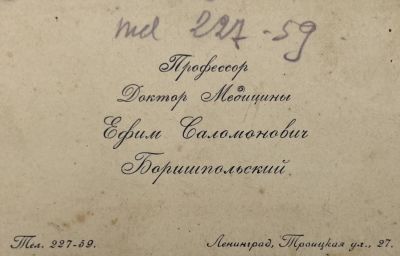 тел 227-59
Профессор
Доктор Медицины
Ефим Саломонович
Боришпольский.
Тел. 227-59.
Ленинград, Троицкая ул., 27.